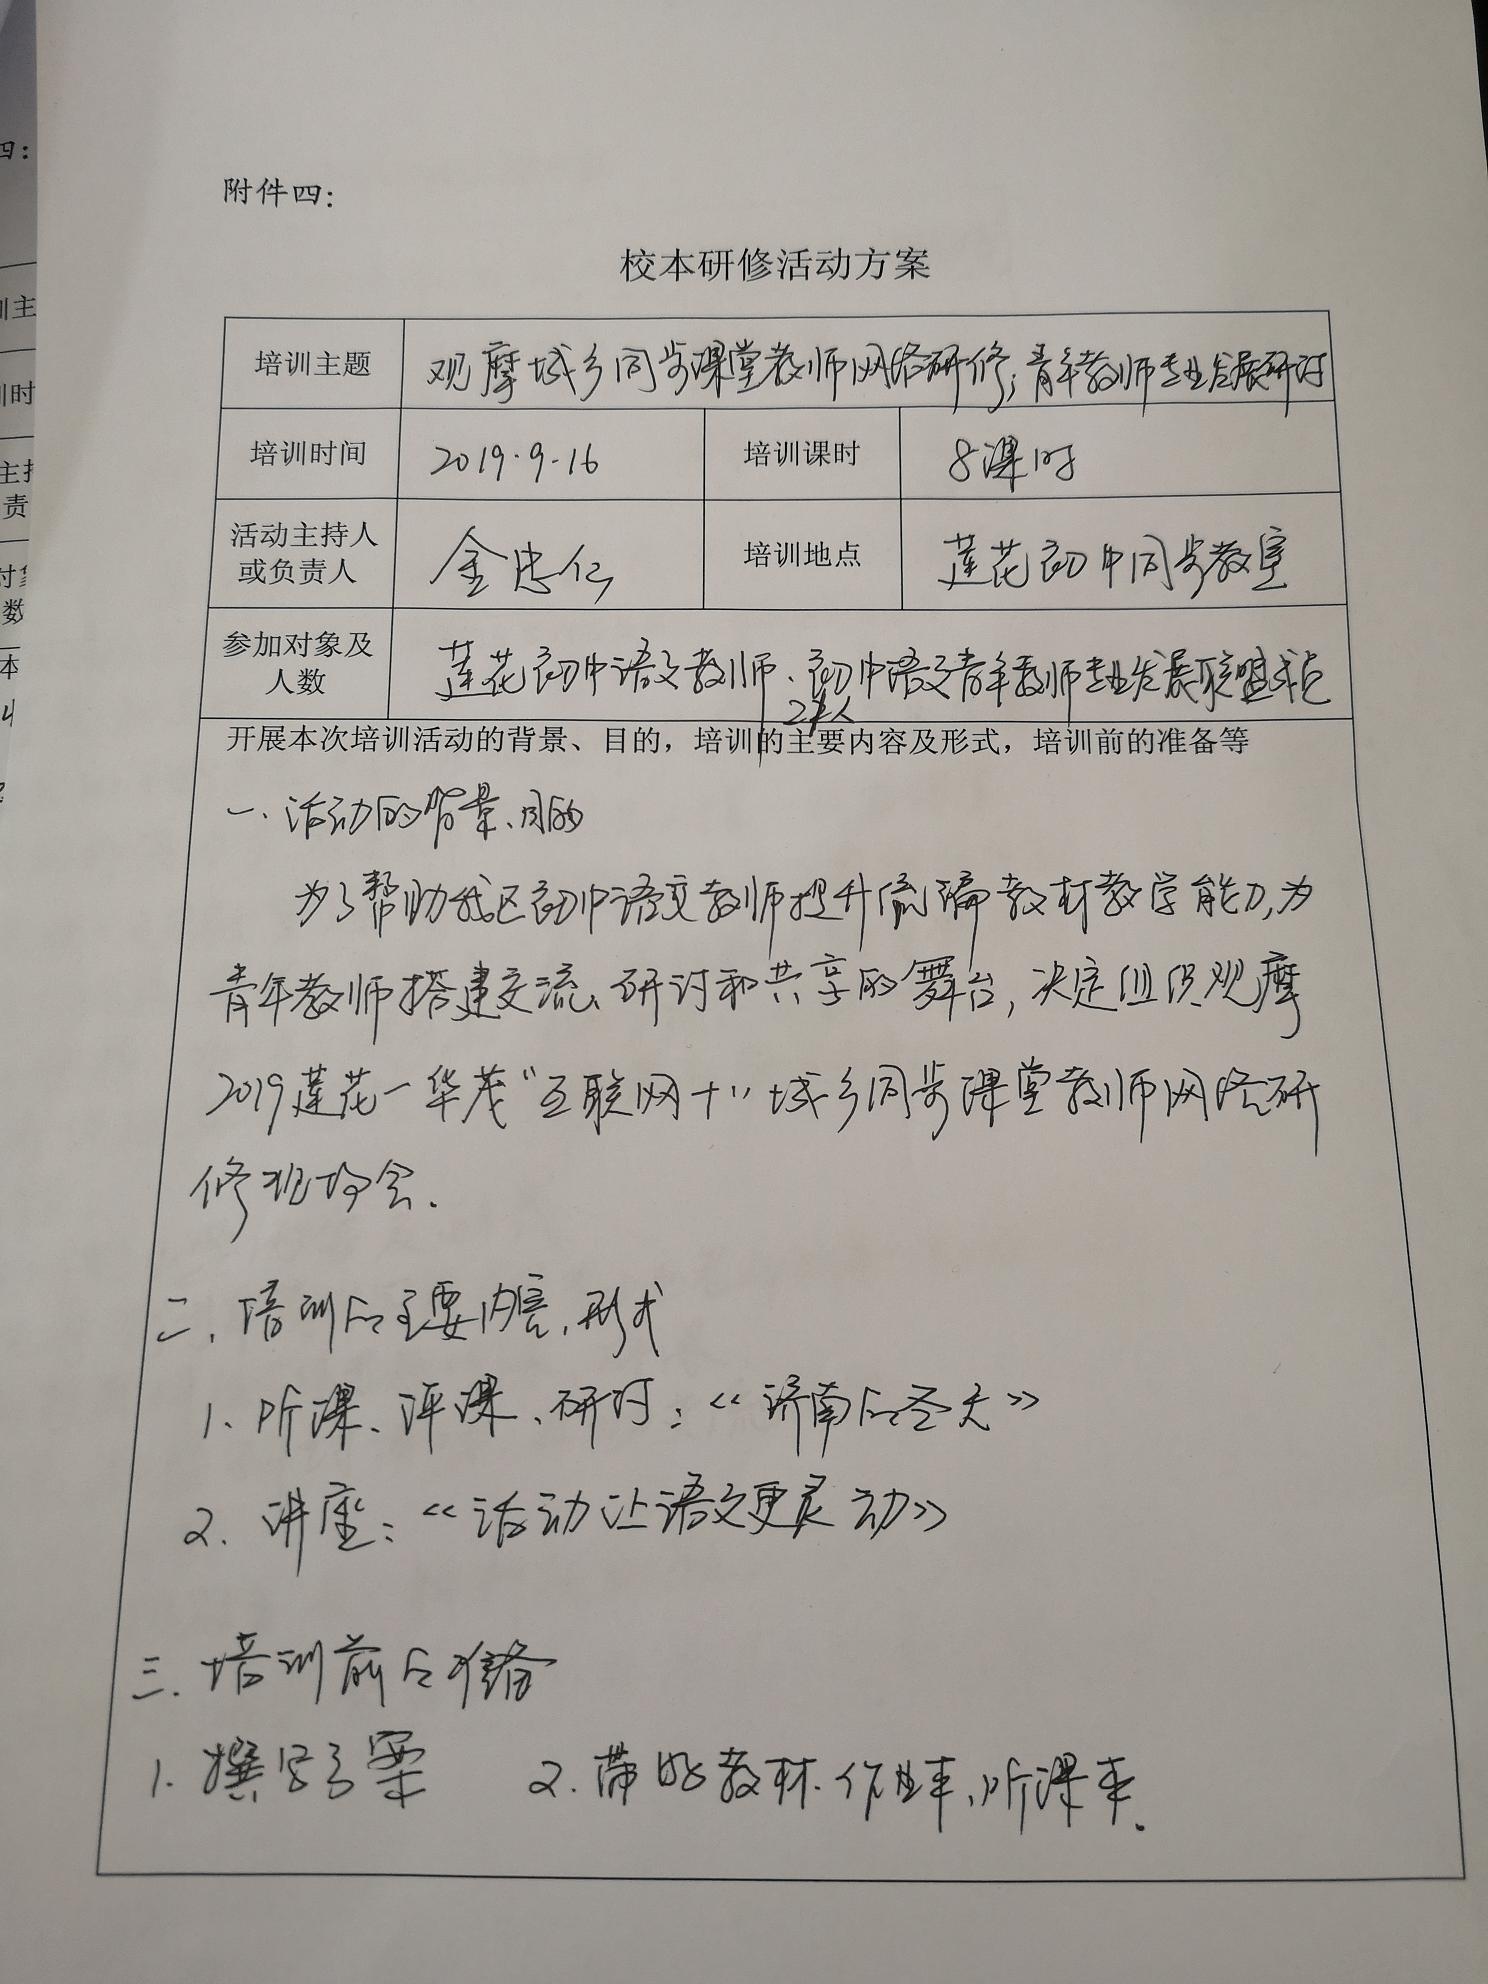 四：
附件四：
校本研修活动方案
培训主题 观摩城乡同步课堂教师网络研修；青年教师专业发展研讨
培训时间 2019.9.16 培训课时 8课时
活动主持人
或负责人 金忠仁 培训地点 莲花初中同步教室
参加对象及
人数 莲花初中语文教师、初中语文青年教师专业发展联盟成员
人
开展本次培训活动的背景、目的，培训的主要内容及形式，培训前的准备等
一、活动的背景、目的
为了帮助我区初中语文教师提升统编教材教学能力，为
青年教师搭建交流、研讨和共享的舞台，决定组织观摩
2019莲花一华茂“互联网十”城乡同步课堂教师网络研
修现场会.
二、培训的主要内容、形式
1、听课、评课、研讨：《济南的冬天》
2. 讲座：《活动让语文更灵动》
三.培训前的准备
1. 撰写了案 2. 带好教材、作业本、听课本.